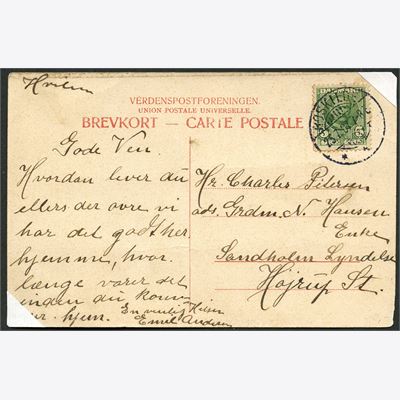 Hvilsen
VERDENSPOSTFORENINGEN.
UNION POSTALE UNIVERSELLE.
BREVKORT — CARTE POSTALE
DANMARK
5 5
Gode Ven.
Hvordan lever du
ellers der ovre vi
har det godt her
hjemme, hvor
længe varer det
inden du kommer
hjem.
En venlig Hilsen
Emil Andersen
Hr. Charles Petersen
ads. Grdm. N. Hansen
Enke
Sandholm Lyndelse
Højrup St.